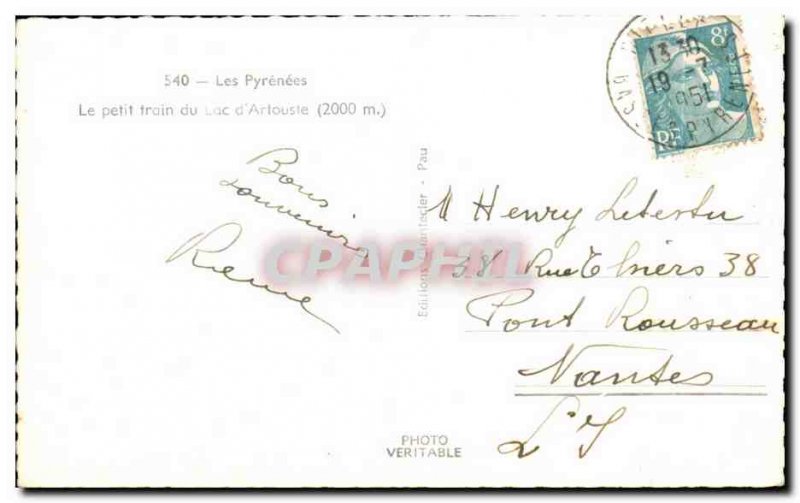 540 — Les Pyrénées
Le petit train du Lac d'Artouste (2000 m.)
Bons
souvenirs
Editions Chantecler - Pau
M Henry Letertu
38 Rue Thiers 38
Pont Rousseau
Nantes
L I
PHOTO
VERITABLE
CPAPHIL
8F
RF
13 30
19 - 7
1951
BAS
PYRENEES